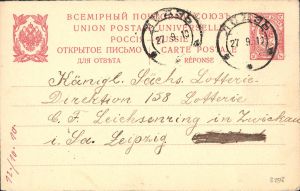 ВСЕМІРНЫЙ ПОЧТОВЫЙ СОЮЗЪ
UNION POSTALE UNIVERSELLE
РОССІЯ RUSSIE
ОТКРЫТОЕ ПИСЬМО CARTE POSTALE
ДЛЯ ОТВѢТА RÉPONSE
27 9 12
27 9 12
Königl. Sächs. Lotterie-
Direktion 158 Lotterie
C. F. Leichsenring in Zwickau
i. Sa. Leipzig